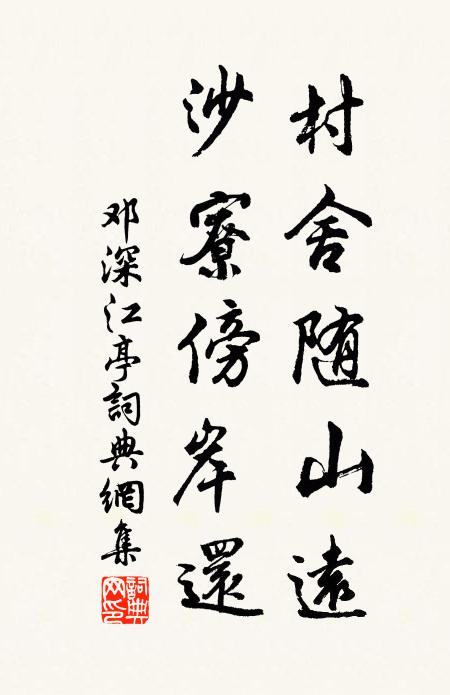 村舍随山遠
沙寮傍岸還
邓深江亭詞典網集
詞典网印